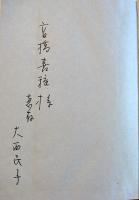 高橋喜雄様
恵存
大西民子